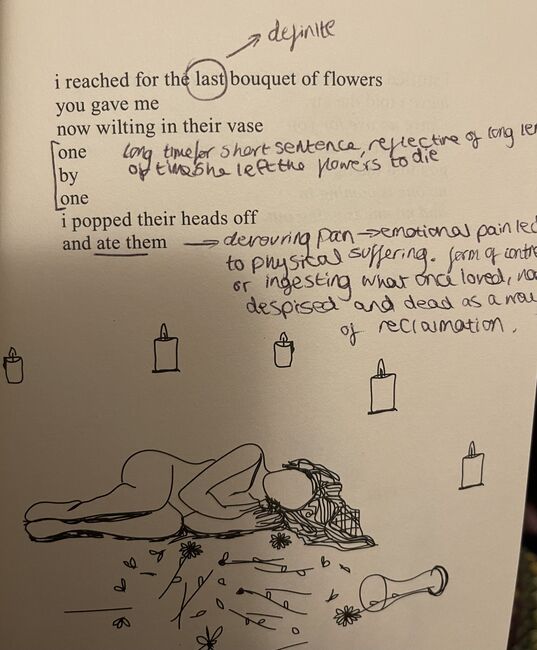 definite
i reached for the last bouquet of flowers
you gave me
now wilting in their vase
one
long time for short sentence, reflective of long
by
of time she left the flowers to die
one
i popped their heads off
and ate them
→ devouring pain → emotional pain led
to physical suffering. form of
or ingesting what once loved,
despised and dead as a
of reclaimation.